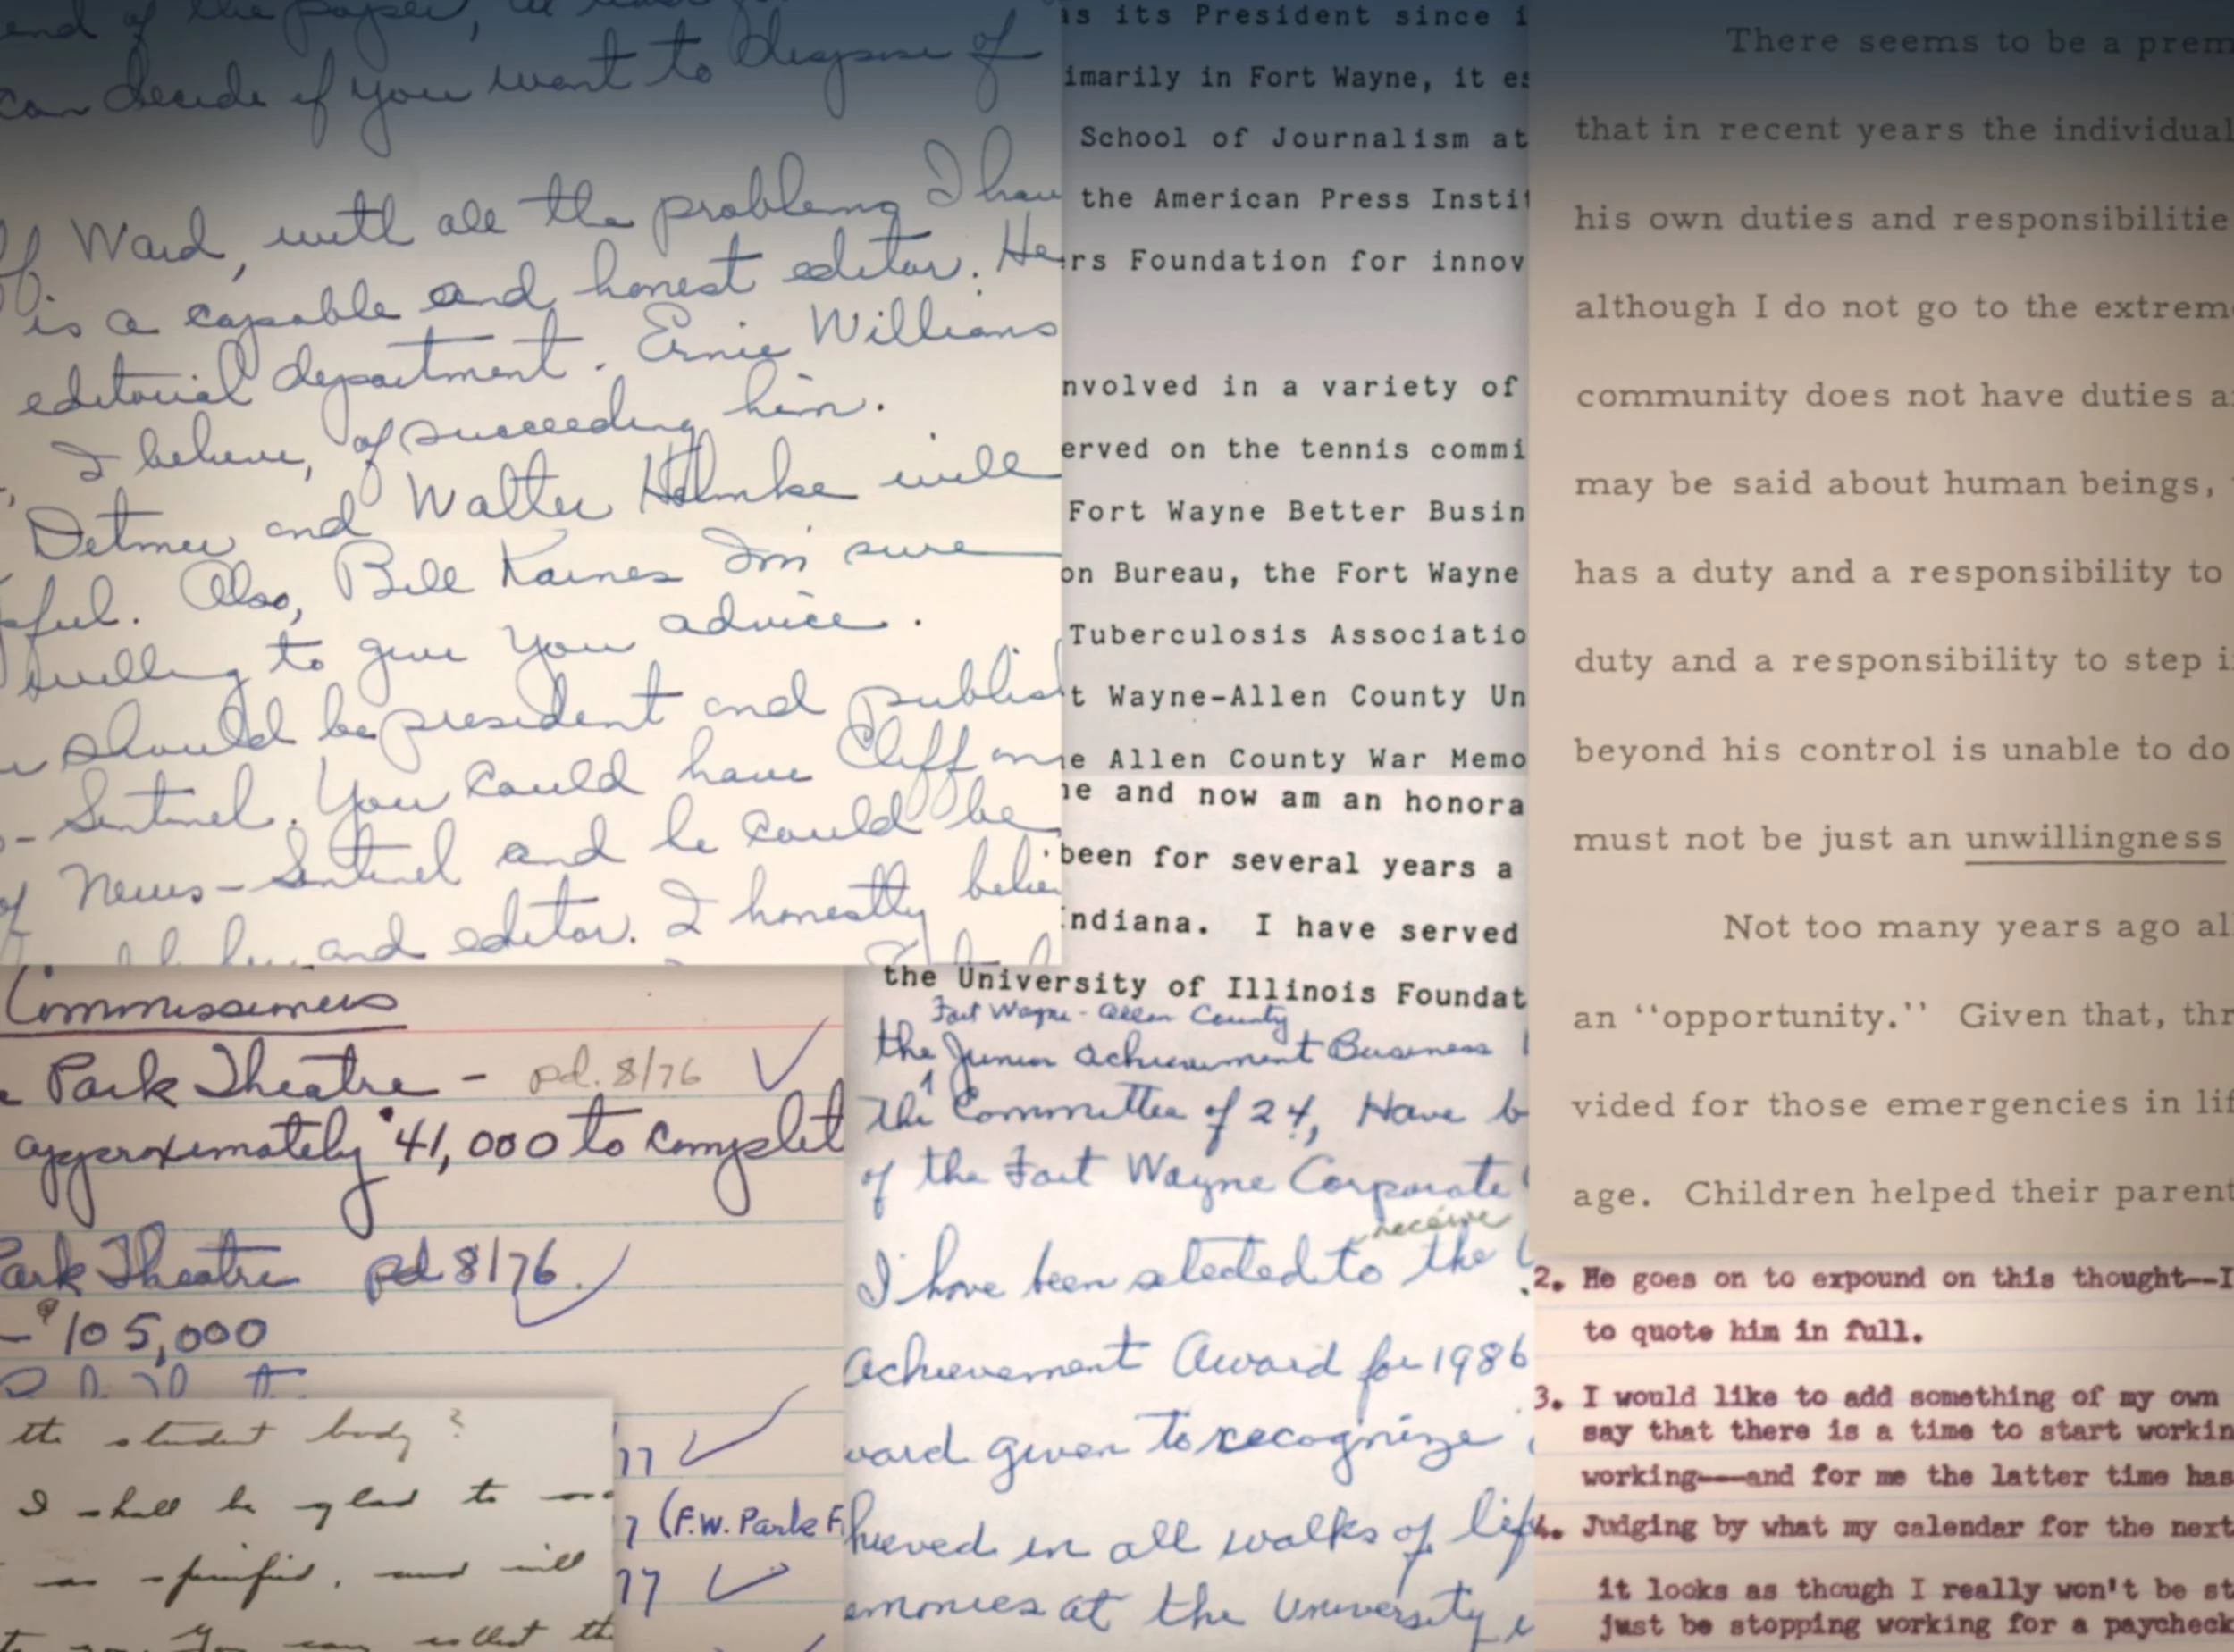 end of the paper, at least
can decide if you want to dispose of
Ward, with all the problems I have
is a capable and honest editor. He
editorial department. Ernie Williams
I believe, of succeeding him.
Detmer and Walter Helmke will
Also, Bill Kaines I'm sure
willing to give you advice.
should be president and publish
- Sentinel. You could have Cliff on
of News-Sentinel and he could be
and editor. I honestly believ
Commissioners
Park Theatre - pd. 8/76
approximately $41,000 to complet
ark Theatre pd 8/76
- $105,000
77
7 (F.W. Park F
77
the student body?
I shall be glad to
as specified, and will
You can collect the
as its President since i
imarily in Fort Wayne, it es
School of Journalism at
the American Press Instit
rs Foundation for innov
nvolved in a variety of
erved on the tennis commi
Fort Wayne Better Busin
on Bureau, the Fort Wayne
Tuberculosis Associatio
t Wayne-Allen County Un
e Allen County War Memo
ne and now am an honora
been for several years a
ndiana. I have served
the University of Illinois Foundat
Fort Wayne - Allen County
the Junior Achievement Business
the Committee of 24, Have b
of the Fort Wayne Corporate
receive
I have been selected to the
Achievement Award for 1986
ward given to recognize
hieved in all walks of lif
emonies at the University
There seems to be a prem
that in recent years the individual
his own duties and responsibilitie
although I do not go to the extrem
community does not have duties a
may be said about human beings,
has a duty and a responsibility to
duty and a responsibility to step i
beyond his control is unable to do
must not be just an unwillingness
Not too many years ago al
an "opportunity." Given that, thr
vided for those emergencies in lif
age. Children helped their parent
2. He goes on to expound on this thought--I
to quote him in full.
3. I would like to add something of my own
say that there is a time to start workin
working---and for me the latter time has
4. Judging by what my calendar for the next
it looks as though I really won't be st
just be stopping working for a paycheck